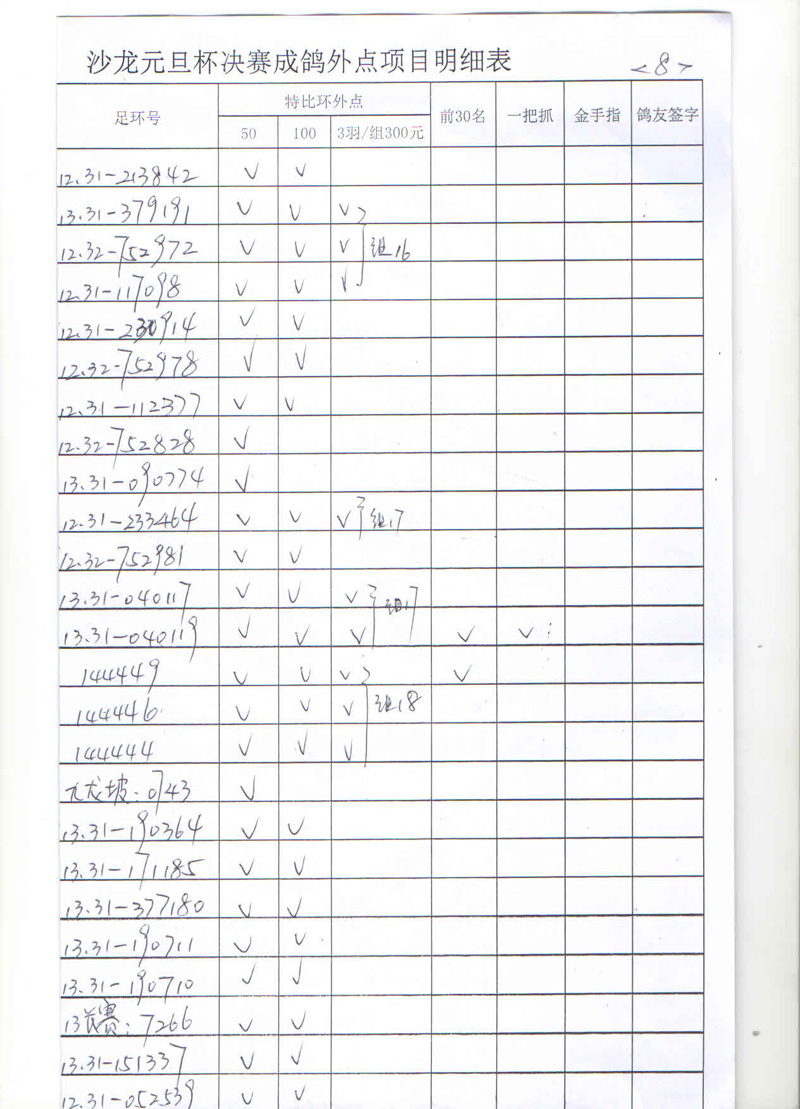 沙龙元旦杯决赛成鸽外点项目明细表 <8>
足环号 特比环外点 前30名 一把抓 金手指 鸽友签字
50 100 3羽/组300元
12.31-213842 ✓ ✓
13.31-379191 ✓ ✓ ✓
12.32-752972 ✓ ✓ ✓ 组16
12.31-117098 ✓ ✓ ✓
12.31-230914 ✓ ✓
12.32-752978 ✓ ✓
12.31-112377 ✓ ✓
12.32-752828 ✓
13.31-090774 ✓
12.31-233464 ✓ ✓ ✓ 组17
12.32-752981 ✓ ✓
13.31-040117 ✓ ✓ ✓ 组17
13.31-040119 ✓ ✓ ✓ ✓ ✓
144449 ✓ ✓ ✓ ✓
144446 ✓ ✓ ✓ 组18
144444 ✓ ✓ ✓
九龙坡:0743 ✓
13.31-190364 ✓ ✓
13.31-171185 ✓ ✓
13.31-377180 ✓ ✓
13.31-190711 ✓ ✓
13.31-190710 ✓ ✓
13 赛:7266 ✓ ✓
13.31-151337 ✓ ✓
12.31-052539 ✓ ✓